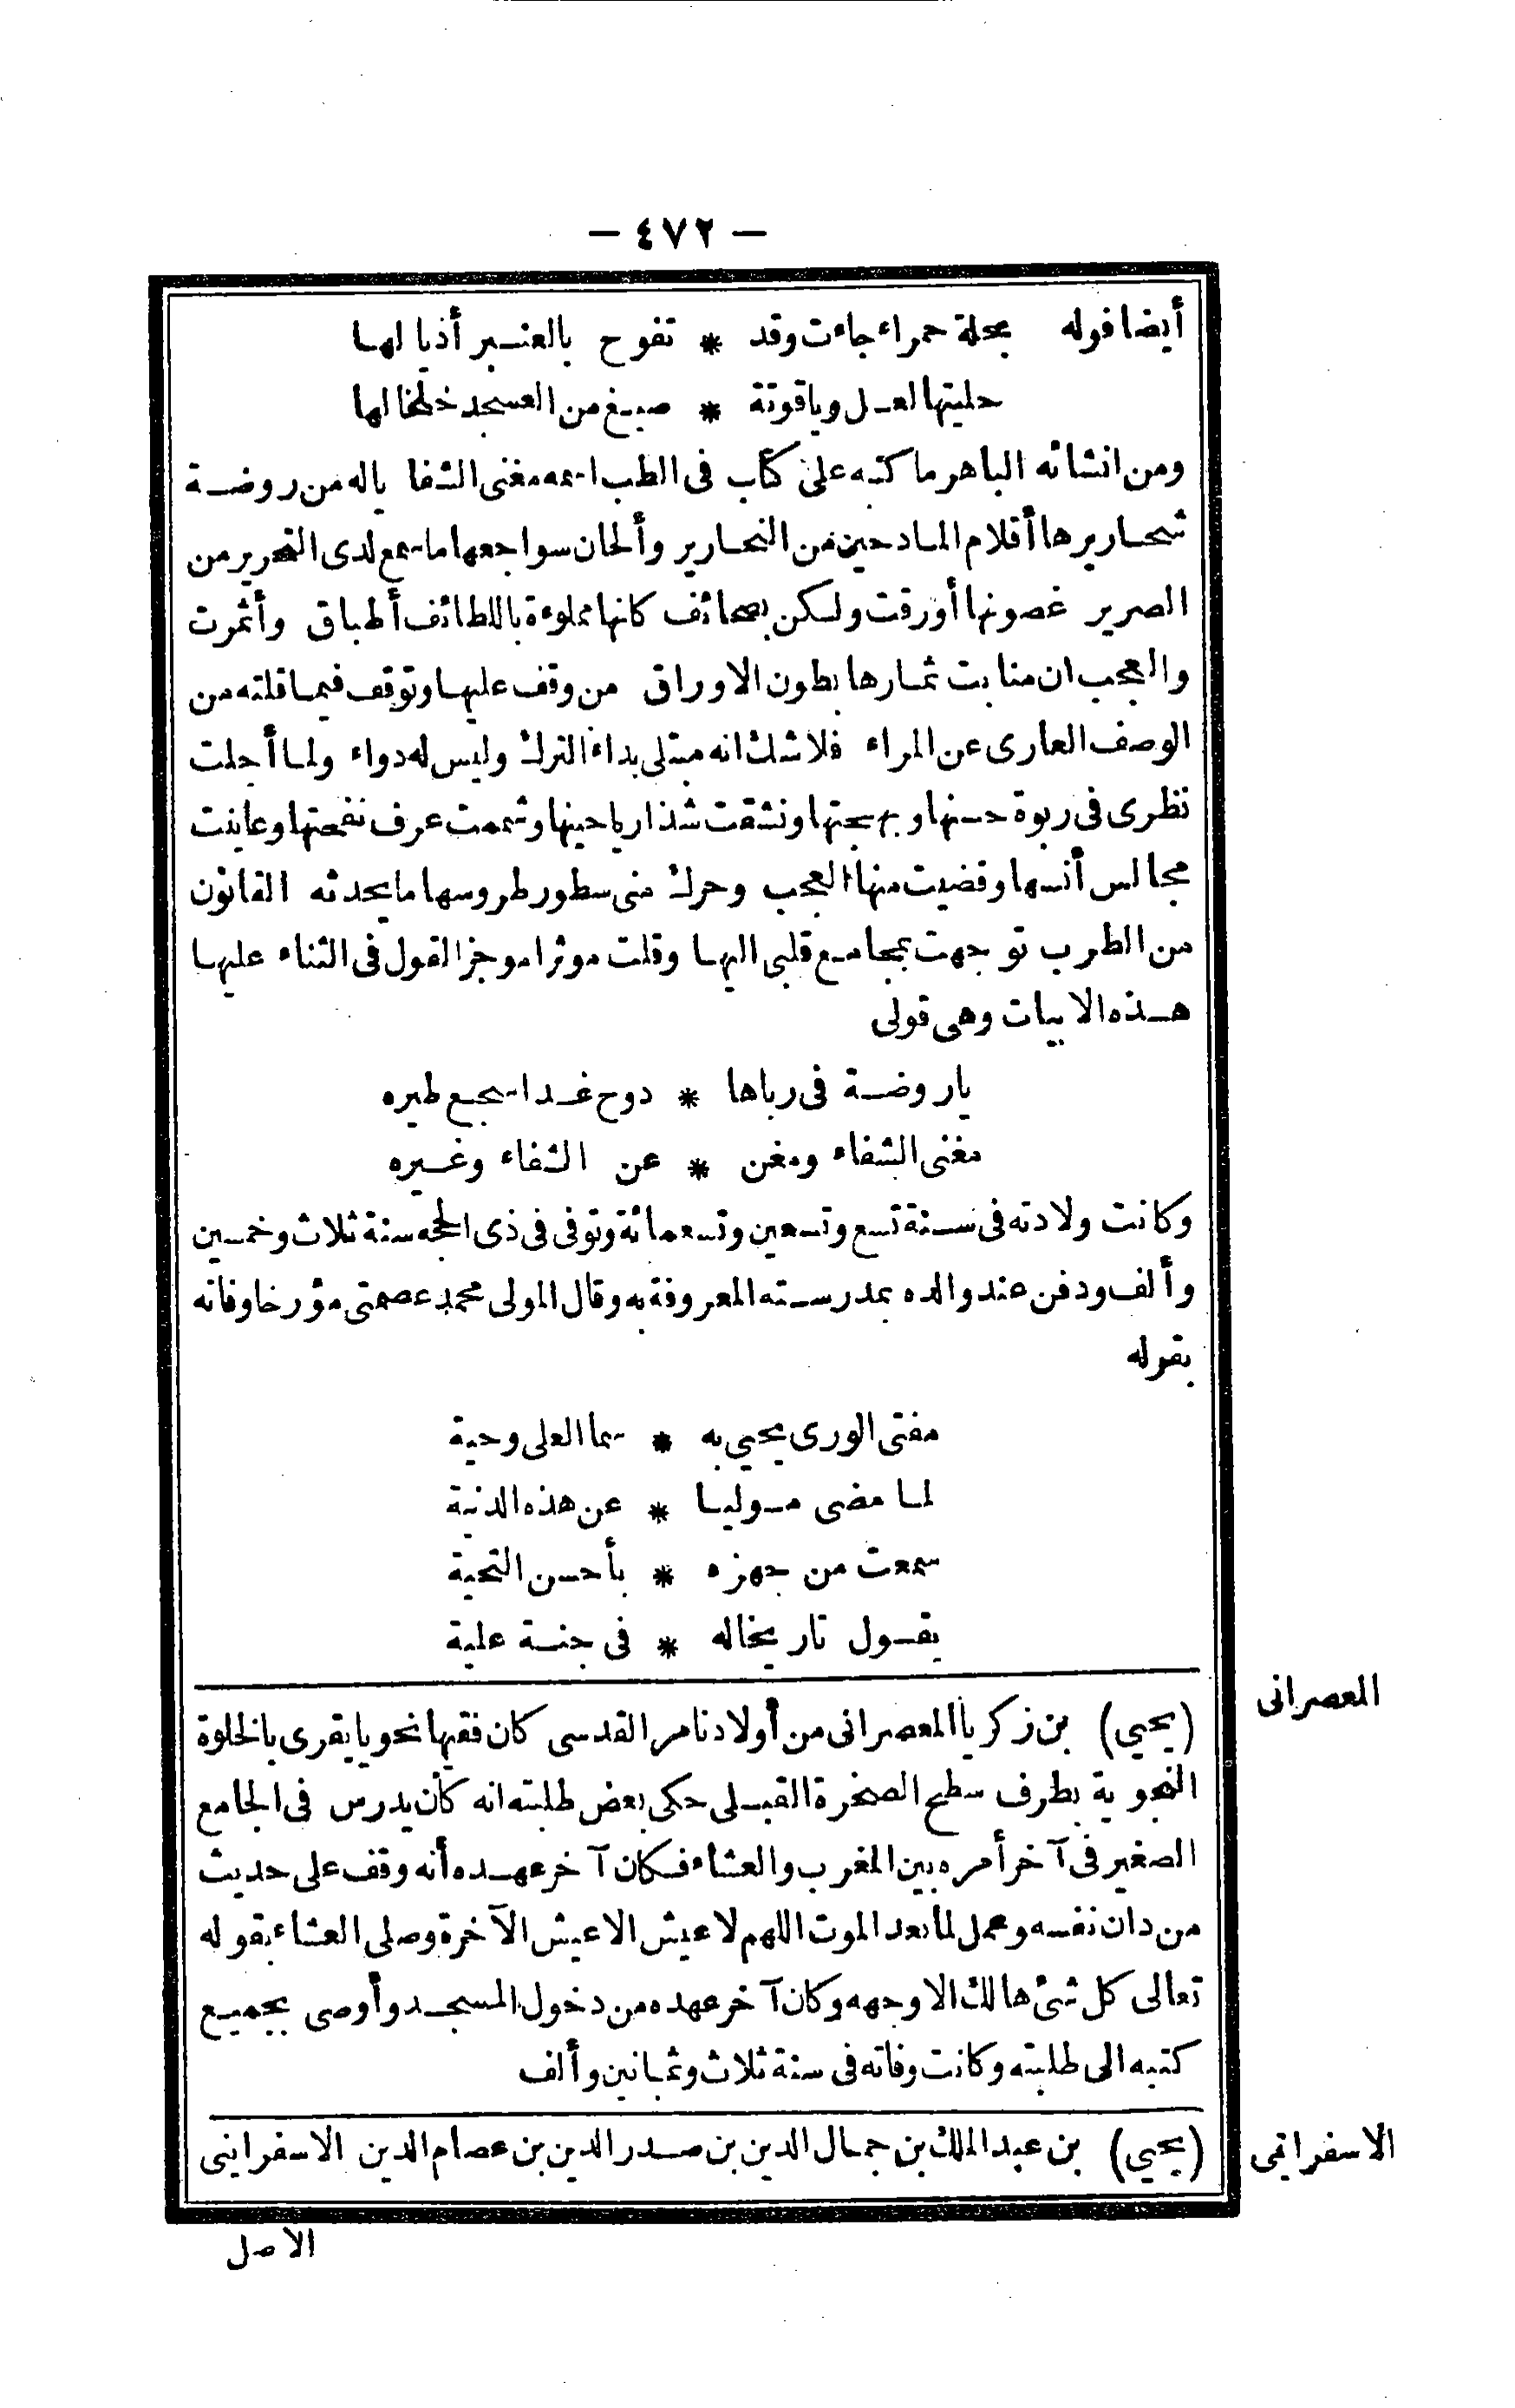 — ٤٧٢ —
أيضا قوله بحلة حمراء جاءت وقد * تفوح بالعنبر أذيالها
حليتها لعل وياقوتة * صيغ من العسجد خلخالها
ومن انشائه الباهر ما كتبه على كتاب فى الطب اسمه مغنى الشفا ياله من روضة
شحاريرها أقلام المادحين من النحارير وألحان سواجعها ما سمع لدى التحرير من
الصرير غصونها أورقت ولكن بصحائف كانها مملوءة باللطائف أطباق وأثمرت
والعجب ان منابت ثمارها بطون الاوراق من وقف عليها وتوقف فيما قلته من
الوصف العارى عن المراء فلا شك انه مبتلى بداء الترك وليس له دواء ولما أجلت
نظرى فى ربوة حسنها وبهجتها ونشقت شذا رياحينها وشممت عرف نفحتها وعاينت
مجالس أنسها وقضيت منها العجب وحرك منى سطور طروسها ما يحدثه القانون
من الطرب توجهت بمجامع قلبى اليها وقلت موثرا موجز القول فى الثناء عليها
هذه الابيات وهى قولى
ياروضة فى رباها * دوح غدا سجع طيره
مغنى الشفاء ومغن * عن الشفاء وغيره
وكانت ولادته فى سنة تسع وتسعين وتسعمائة وتوفى فى ذى الحجه سنة ثلاث وخمسين
وألف ودفن عند والده بمدرسته المعروفة به وقال المولى محمد عصمتى مؤرخا وفاته
بقوله
مفتى الورى يحيى به * سما العلى وحية
لما مضى موليا * عن هذه الدنية
سمعت من جهزه * بأحسن التحية
يقول تاريخاله * فى جنة علية
المعصرانى
(يحيى) بن زكريا المعصرانى من أولاد نامر القدسى كان فقيها نحويا يقرى بالخلوة
النحوية بطرف سطح الصخرة القبلى حكى بعض طلبته انه كان يدرس فى الجامع
الصغير فى آخر أمره بين المغرب والعشاء فكان آخر عهده أنه وقف على حديث
من دان نفسه وعمل لما بعد الموت اللهم لا عيش الا عيش الآخرة وصلى العشاء بقوله
تعالى كل شئ هالك الا وجهه وكان آخر عهده من دخول المسجد وأوصى بجميع
كتبه الى طلبته وكانت وفاته فى سنة ثلاث وثمانين وألف
الاسفراينى
(يحيى) بن عبد الملك بن جمال الدين بن صدر الدين بن عصام الدين الاسفراينى
الاصل